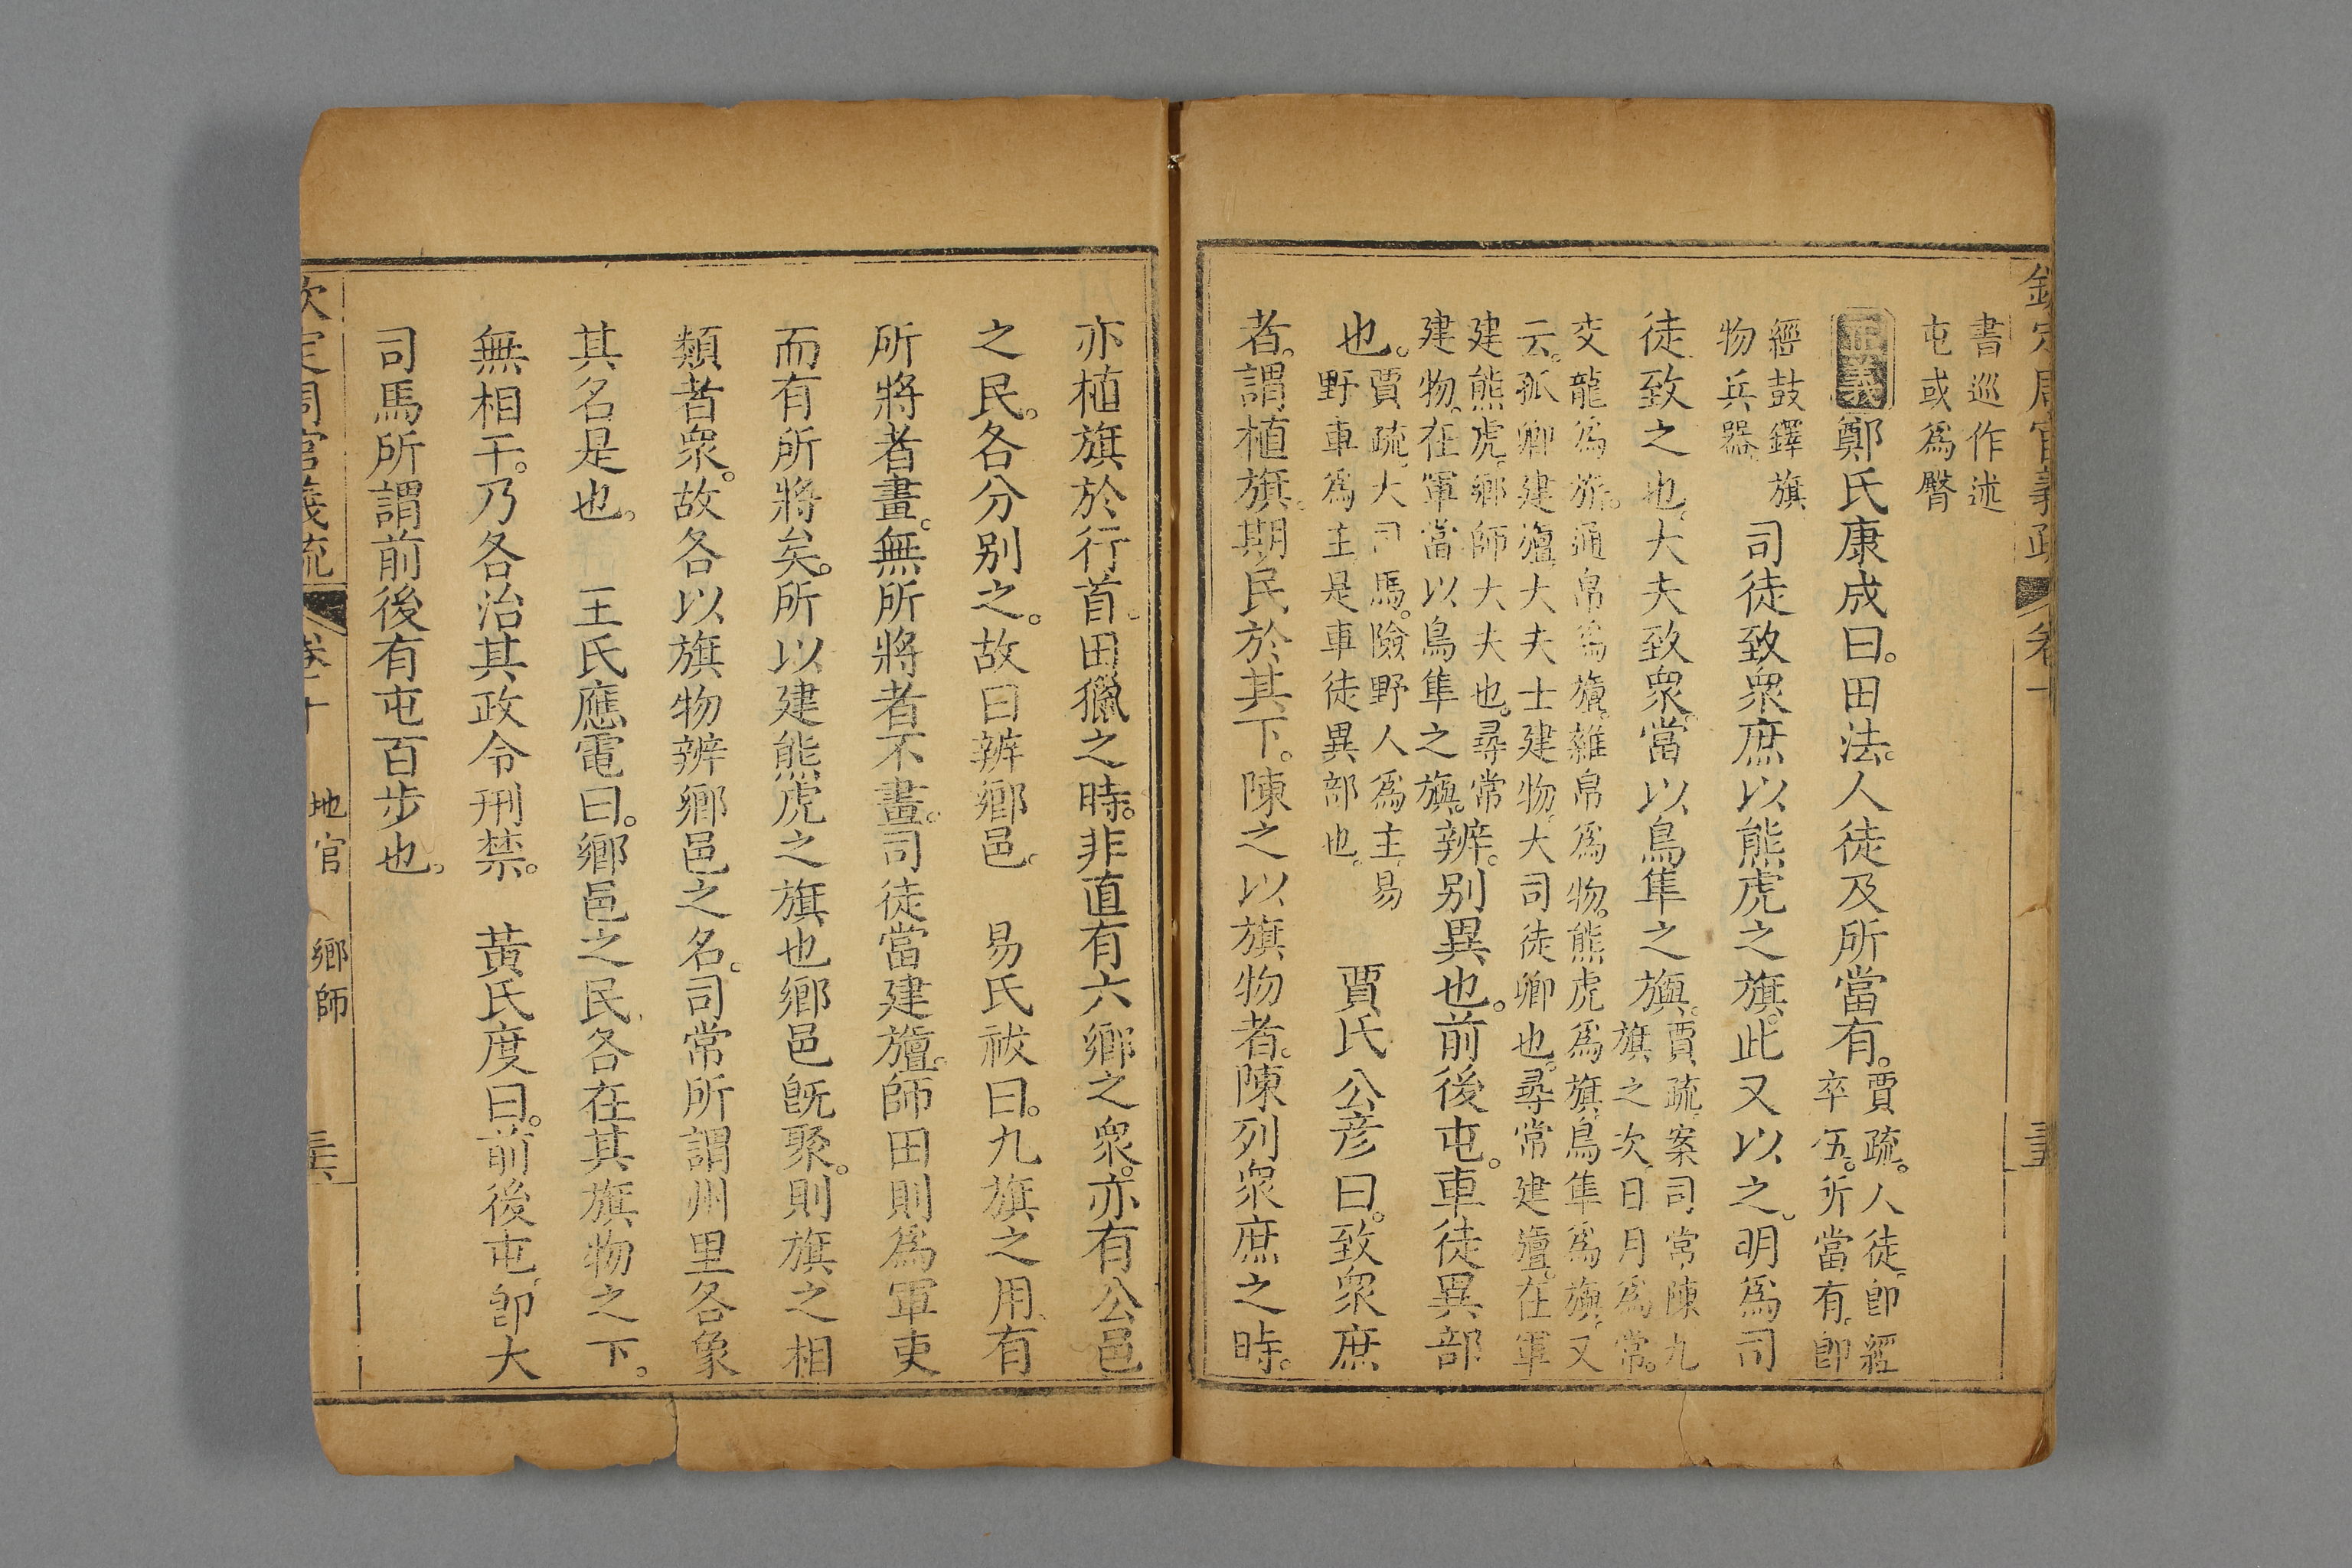 欽定周官義疏 卷十
書巡作述
屯或爲臀
正義 鄭氏康成曰。田法。人徒及所當有。賈疏。人徒。卽經卒伍。所當有。卽
經鼓鐸旗物兵器。 司徒致衆庶以熊虎之旗。此又以之。明爲司
徒致之也。大夫致衆。當以鳥隼之旟。賈疏。案司常陳九旗之次。日月爲常。
交龍爲旂。通帛爲旜。雜帛爲物。熊虎爲旗。鳥隼爲旟。又
云。孤卿建旜。大夫士建物。大司徒卿也。尋常建旜。在軍
建熊虎。鄉師大夫也。尋常建物。在軍當以鳥隼之旟。辨。別異也。前後屯。車徒異部
也。賈疏。大司馬。險野人爲主。易野車爲主。是車徒異部也。 賈氏公彥曰。致衆庶
者。謂植旗。期民於其下。陳之以旗物者。陳列衆庶之時。
亦植旗於行首。田獵之時。非直有六鄉之衆。亦有公邑
之民。各分別之。故曰辨鄉邑。 易氏祓曰。九旗之用。有
所將者畫。無所將者不畫。司徒當建旜。師田則爲軍吏
而有所將矣。所以建熊虎之旗也鄉邑旣聚。則旗之相
類者衆。故各以旗物辨鄉邑之名。司常所謂州里各象
其名是也。 王氏應電曰。鄉邑之民。各在其旗物之下。
無相干。乃各治其政令刑禁。 黃氏度曰。前後屯。卽大
司馬所謂前後有屯百步也。
欽定周官義疏 卷十 地官 鄉師